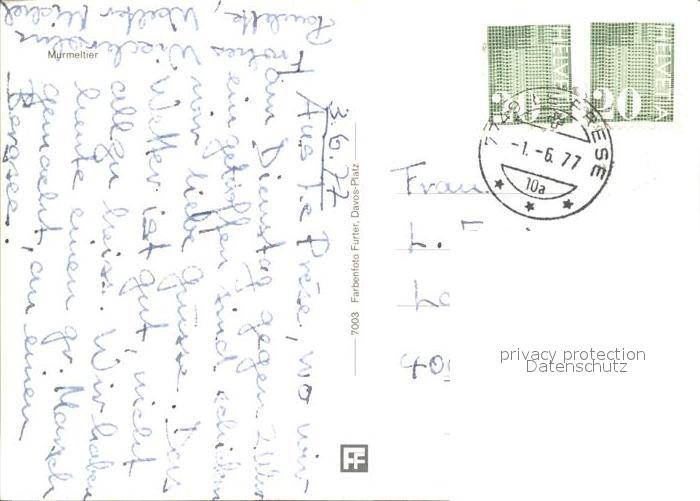 Murmeltier
3.6.77
Aus Le Prese, wo wir
am Dienstag gegen 2 Uhr
eingetroffen sind, schicken
wir liebe Grüsse. Das
Wetter ist gut, nicht
allzu heiss. Wir haben
heute einen gr. Marsch
gemacht, an einem
Bergsee.
7003 Farbenfoto Furter, Davos-Platz
FF
HELVETIA
20
HELVETIA
20
PRESE
-1.-6.77
10a
Frau
L.
privacy protection
Datenschutz